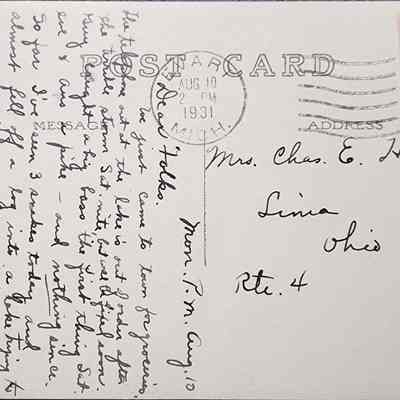 POST CARD
STAR
AUG 10
2 PM
1931
MICH.
MESSAGE
ADDRESS
Mon. P.M. Aug. 10
Dear Folks,
We just came to town for groceries.
The telephone out at the lake is out of order after
the terrible storm Sat. nite, but will be fixed soon.
caught a big bass the first thing Sat.
eve & Ans a pike — and nothing since.
So far I've seen 3 snakes today and
almost fell off a log into a lake trying to
Mrs. Chas. E. H
Lima
Ohio
Rte. 4